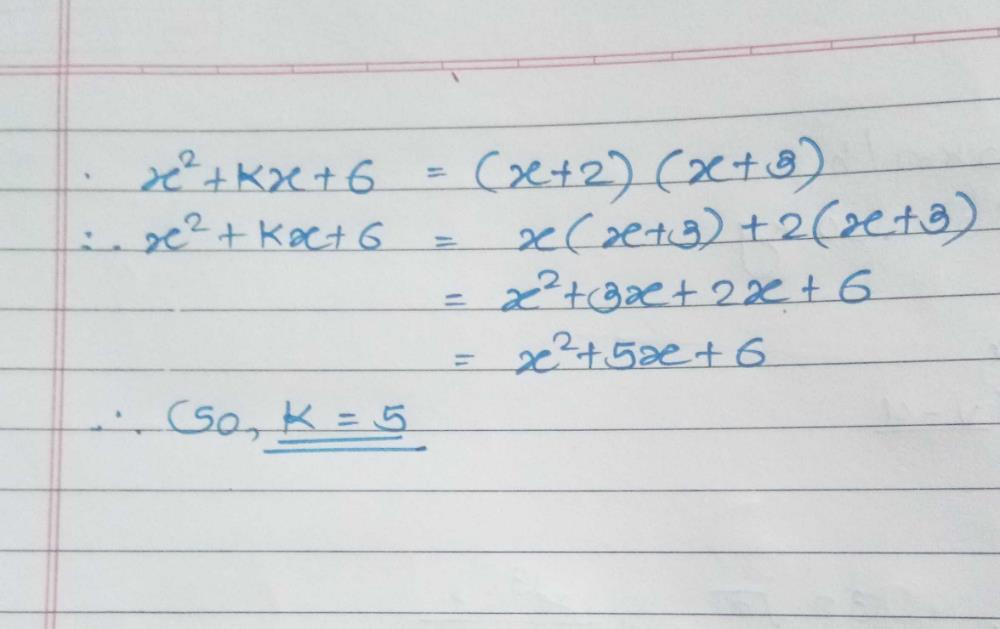 . x² + kx + 6 = (x+2) (x+3)
∴ x² + kx + 6 = x(x+3) + 2(x+3)
= x² + 3x + 2x + 6
= x² + 5x + 6
∴ (So, K = 5